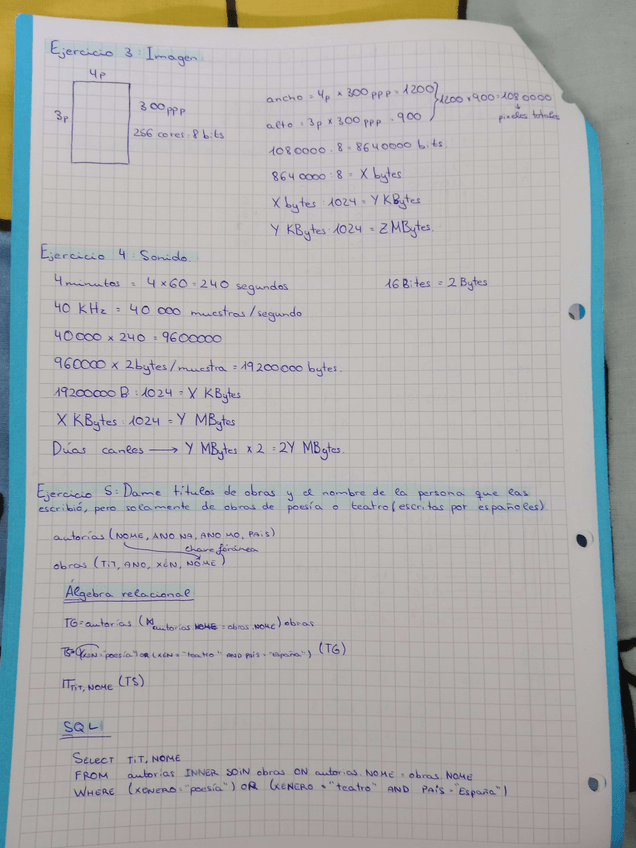 Ejercicio 3: Imagen
4p
3p
300ppp
256 cores: 8 bits
ancho = 4p × 300 ppp = 1200
alto = 3p × 300 ppp = 900
1200 × 900 = 1080000
pixeles totales
1080000 · 8 = 8640000 bits
8640000 : 8 = X bytes
X bytes : 1024 = Y KBytes
Y KBytes : 1024 = Z MBytes.
Ejercicio 4: Sonido
4 minutos = 4 × 60 = 240 segundos
16 Bites = 2 Bytes
40 KHz = 40 000 muestras/segundo
40000 × 240 = 9600000
960000 × 2bytes/muestra = 19200000 bytes.
19200000 B : 1024 = X KBytes
X KBytes : 1024 = Y MBytes
Dúas canles → Y MBytes × 2 = 2Y MBytes.
Ejercicio 5: Dame títulos de obras y el nombre de la persona que las
escribió, pero solamente de obras de poesía o teatro (escritas por españoles)
autorías (NOME, ANO NA, ANO MO, PAÍS)
chave foránea
obras (TIT, ANO, XÉN, NOME)
Álgebra relacional
TG = autorías (⋈ autorias.NOME = obras.NOME) obras
XEN = "poesía") OR (XEN = "teatro" AND PAÍS = "España") (TG)
Π TIT, NOME (TS)
SQL
SELECT TIT, NOME
FROM autorias INNER JOIN obras ON autorias.NOME = obras.NOME
WHERE (XENERO = "poesía") OR (XENERO = "teatro" AND PAÍS = "España")